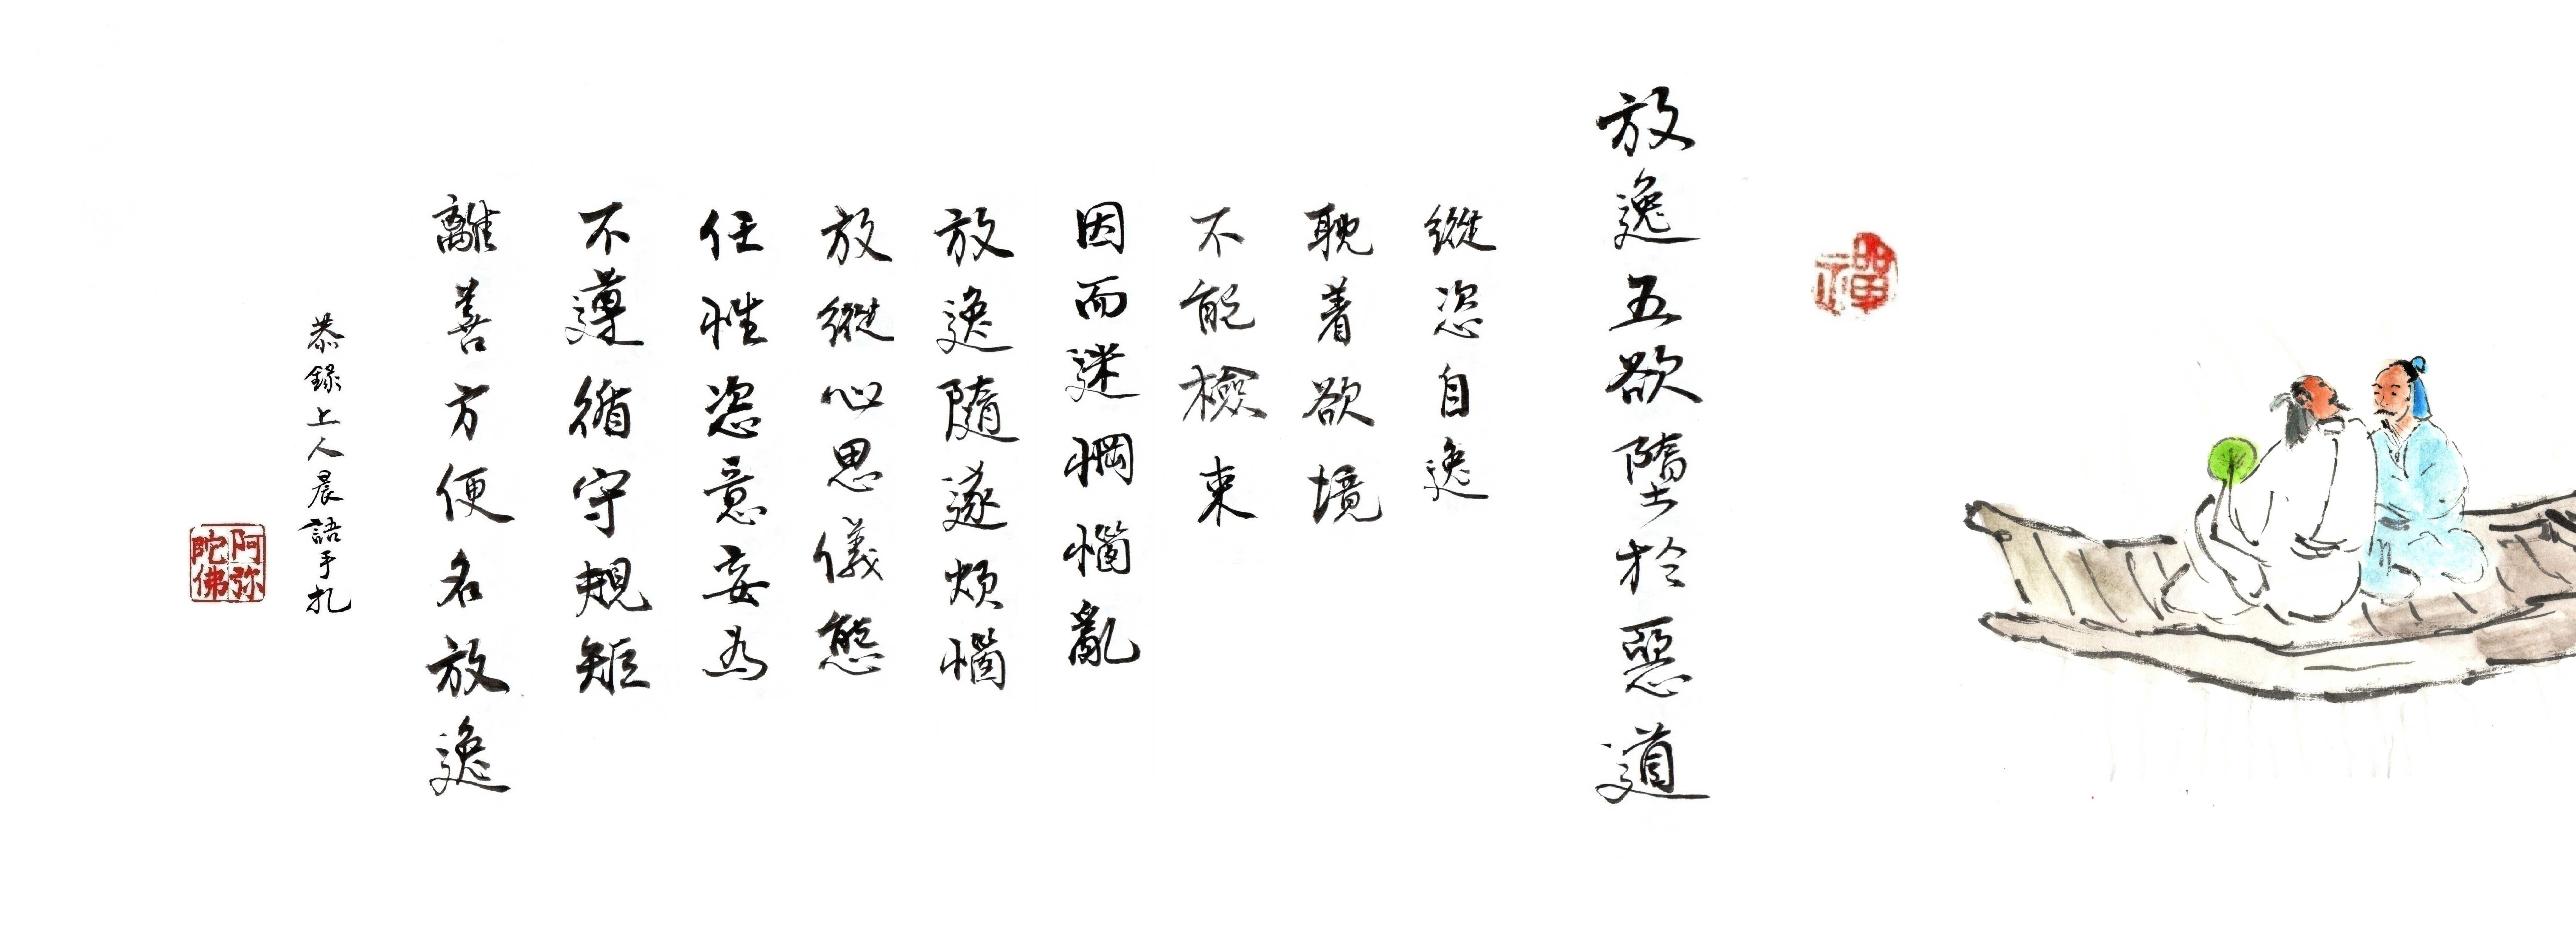 禪
放逸五欲墮於惡道
縱恣自逸
耽着欲境
不能檢束
因而迷惘惱亂
放逸隨逐煩惱
放縱心思儀態
任性恣意妄為
不遵循守規矩
離善方便名放逸
恭錄上人晨語手札
阿弥陀佛